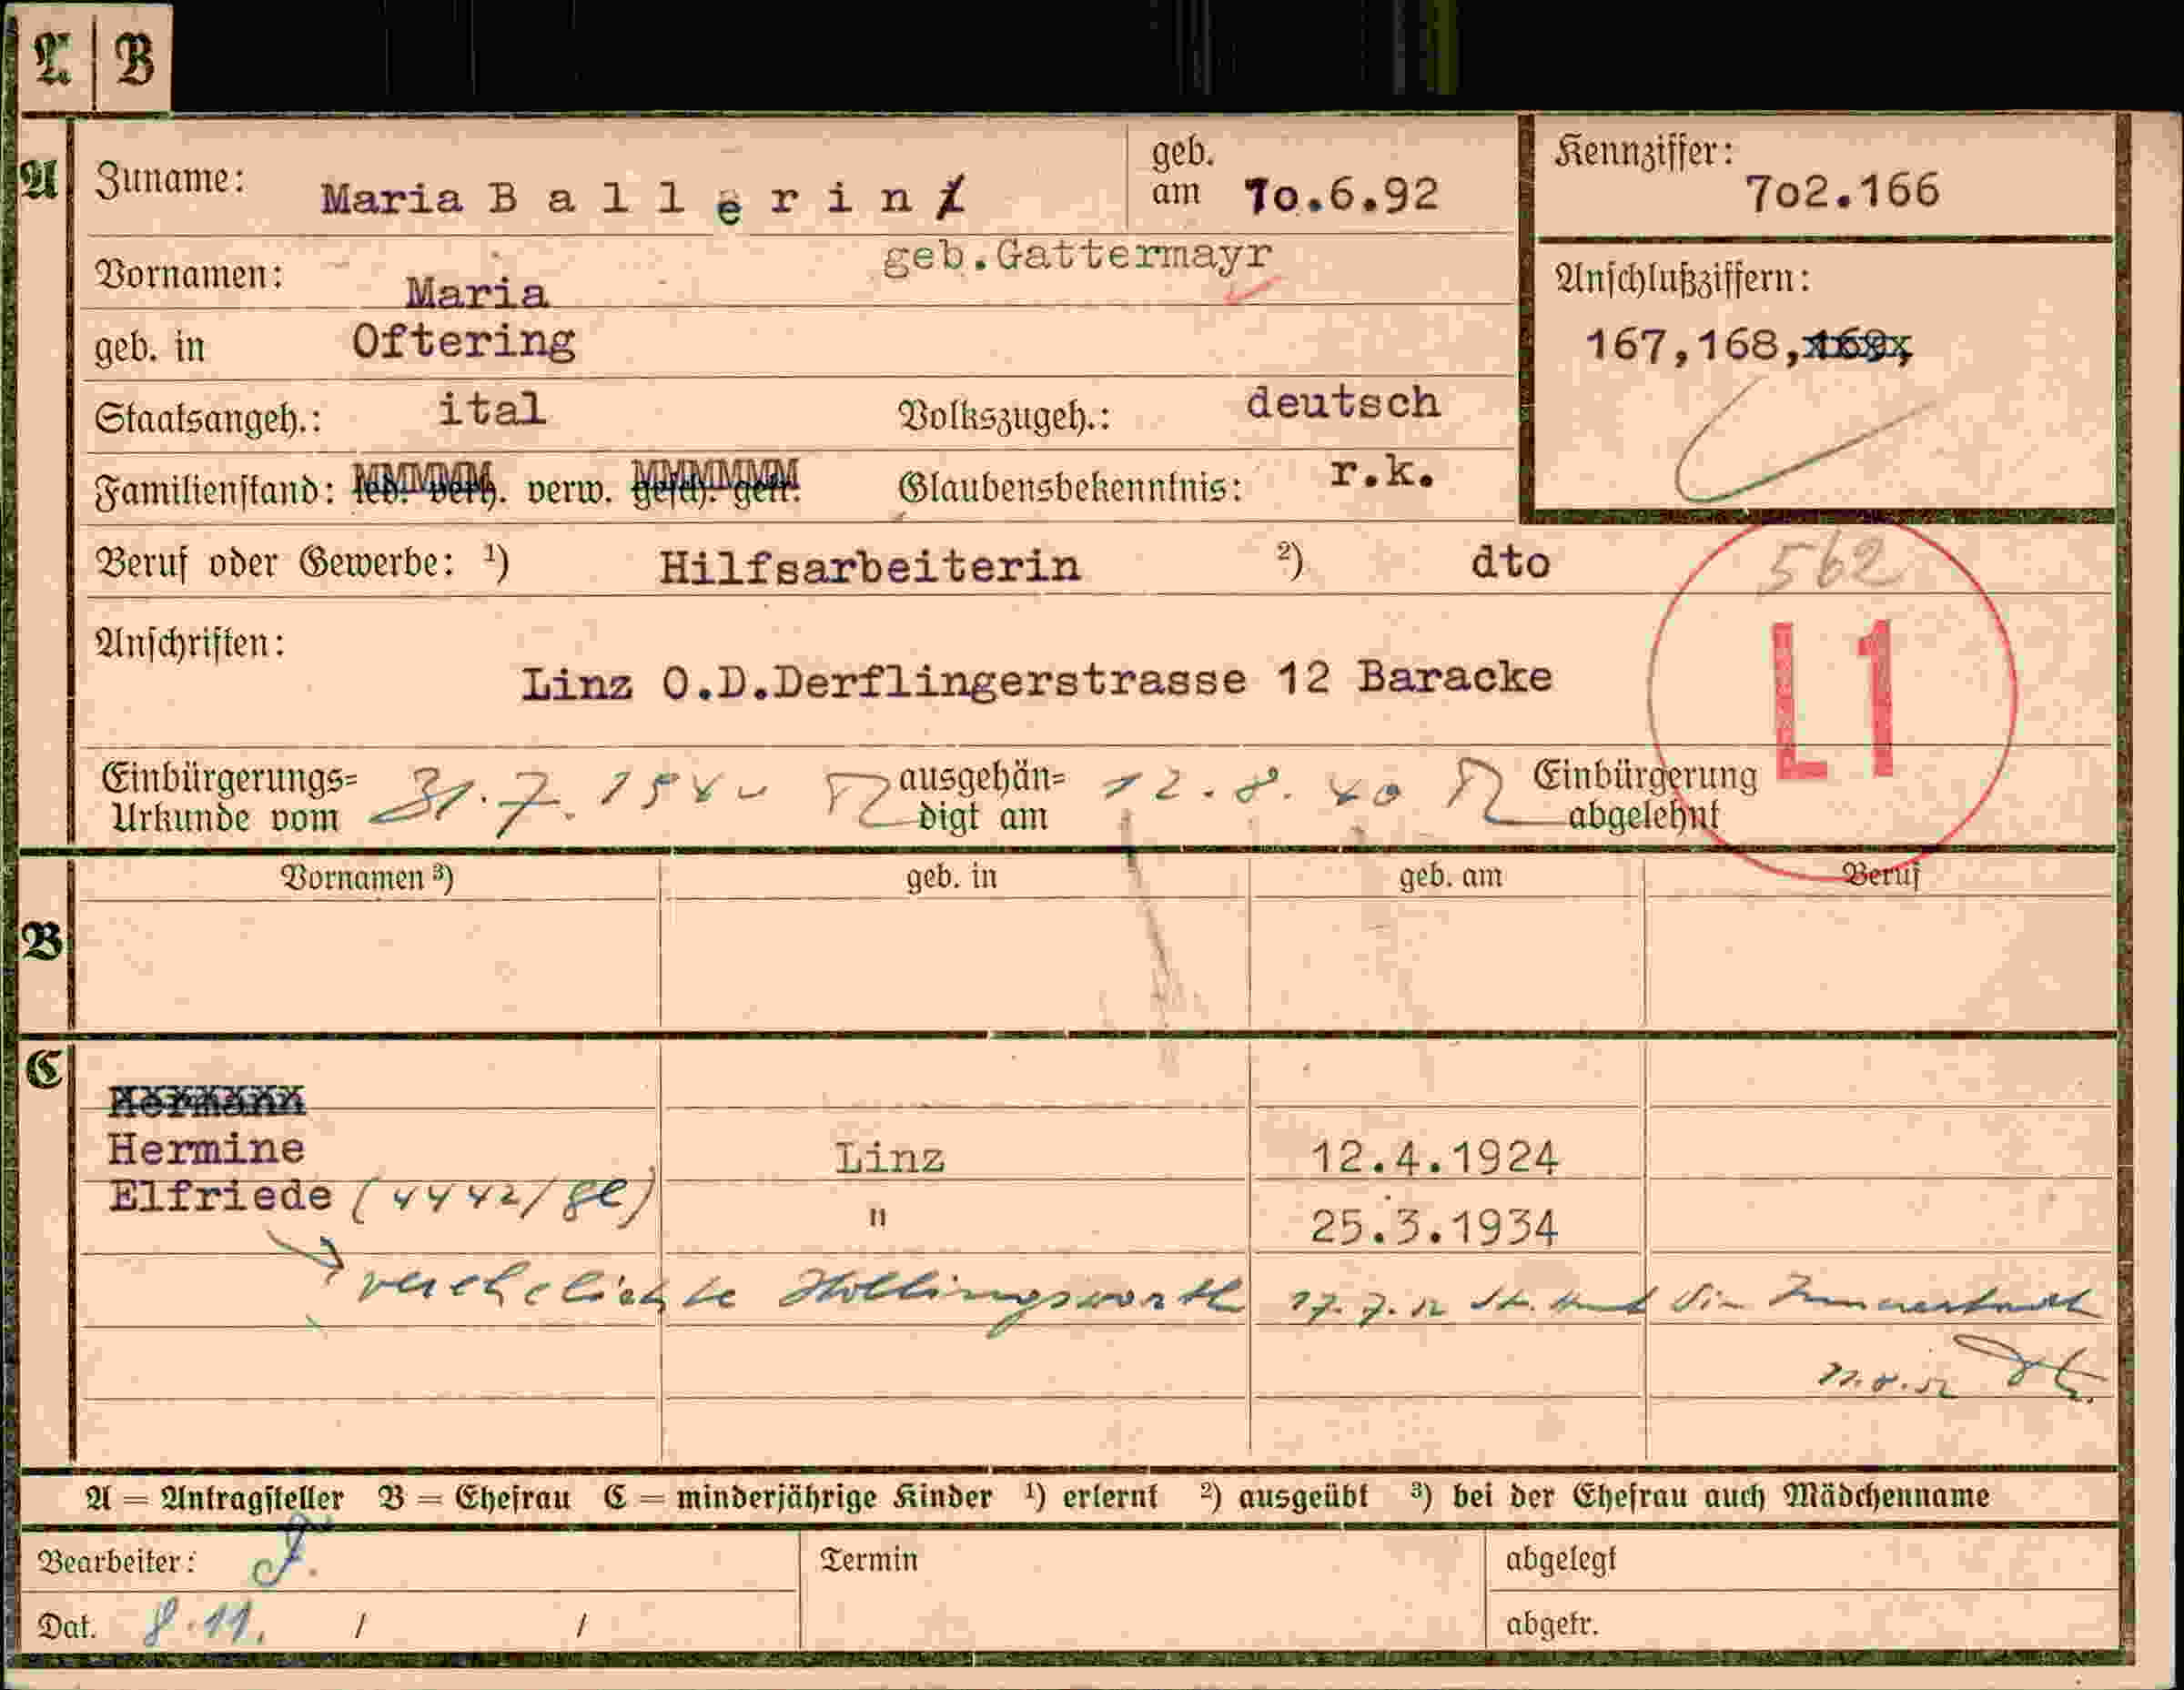 A B
A Zuname: Maria Ballerini geb. am 10.6.92 Kennziffer: 702.166
Vornamen: Maria geb.Gattermayr Anschlußziffern:
geb. in Oftering 167,168,169,
Staatsangeh.: ital Volkszugeh.: deutsch
Familienstand: led. verh. verw. gesch. getr. Glaubensbekenntnis: r.k.
Beruf oder Gewerbe: ¹) Hilfsarbeiterin ²) dto 562
Anschriften: L1
Linz O.D.Derflingerstrasse 12 Baracke
Einbürgerungs= ausgehän= Einbürgerung
Urkunde vom 31.7.1940 digt am 12.8.40 abgelehnt
Vornamen ³) geb. in geb. am Beruf
B
C
Hermann
Hermine Linz 12.4.1924
Elfriede (4442/ge) " 25.3.1934
verehelichte Hollingsworth 17.7.52
A = Antragsteller B = Ehefrau C = minderjährige Kinder ¹) erlernt ²) ausgeübt ³) bei der Ehefrau auch Mädchenname
Bearbeiter: J. Termin abgelegt
Dat. 8.11. / / abgetr.